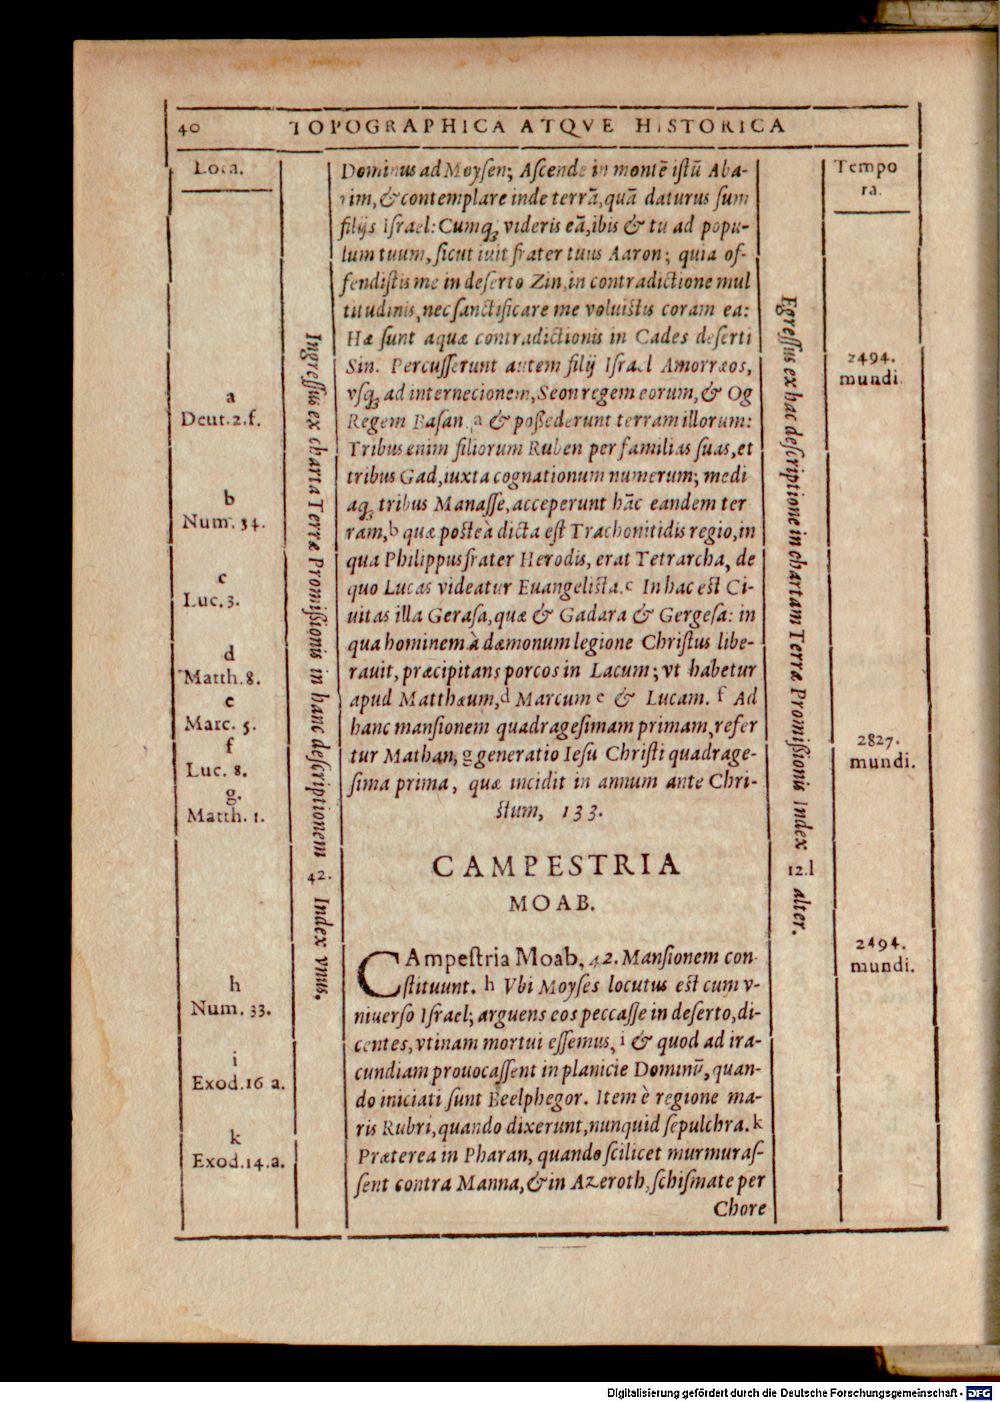 40 TOPOGRAPHICA ATQVE HISTORICA
Loca.
a
Deut.2.f.
b
Num. 34.
c
Luc.3.
d
Matth.8.
e
Marc. 5.
f
Luc. 8.
g.
Matth. 1.
h
Num. 33.
i
Exod.16 a.
k
Exod.14.a.
Ingreſſus ex charta Terræ Promiſſionis in hanc deſcriptionem 42. Index vnus.
Dominus ad Moyſen; Aſcende in montē iſtū Aba-
rim, & contemplare inde terrā, quā daturus ſum
filijs Iſrael: Cumq; videris eā, ibis & tu ad popu-
lum tuum, ſicut iuit frater tuus Aaron; quia of-
fendiſtis me in deſerto Zin, in contradictione mul
titudinis, nec ſanctificare me voluiſtis coram ea:
Hæ ſunt aquæ contradictionis in Cades deſerti
Sin. Percuſſerunt autem filij Iſrael Amorræos,
vſq; ad internecionem, Seon regem eorum, & Og
Regem Baſan. a & poſſederunt terram illorum:
Tribus enim filiorum Ruben per familias ſuas, et
tribus Gad, iuxta cognationum numerum; medi
aq; tribus Manaſſe, acceperunt hāc eandem ter
ram, b quæ poſteà dicta eſt Trachonitidis regio, in
qua Philippus frater Herodis, erat Tetrarcha, de
quo Lucas videatur Euangeliſta. c In hac eſt Ci-
uitas illa Geraſa, quæ & Gadara & Gergeſa: in
qua hominem à dæmonum legione Chriſtus libe-
rauit, præcipitans porcos in Lacum; vt habetur
apud Matthæum, d Marcum e & Lucam. f Ad
hanc manſionem quadrageſimam primam, refer
tur Mathan, g generatio Ieſu Chriſti quadrage-
ſima prima, quæ incidit in annum ante Chri-
ſtum, 133.
CAMPESTRIA
MOAB.
CAmpeſtria Moab, 42. Manſionem con-
ſtituunt. h Vbi Moyſes locutus eſt cum v-
niuerſo Iſrael; arguens eos peccaſſe in deſerto, di-
centes, vtinam mortui eſſemus, i & quod ad ira-
cundiam prouocaſſent in planicie Dominū, quan-
do iniciati ſunt Beelphegor. Item è regione ma-
ris Rubri, quando dixerunt, nunquid ſepulchra. k
Præterea in Pharan, quando ſcilicet murmuraſ-
ſent contra Manna, & in Azeroth, ſchiſmate per
Chore
Egreſſus ex hac deſcriptione in chartam Terræ Promiſſionis Index 12.l alter.
Tempo
ra.
2494.
mundi.
2827.
mundi.
2494.
mundi.
Digitalisierung gefördert durch die Deutsche Forschungsgemeinschaft - DFG